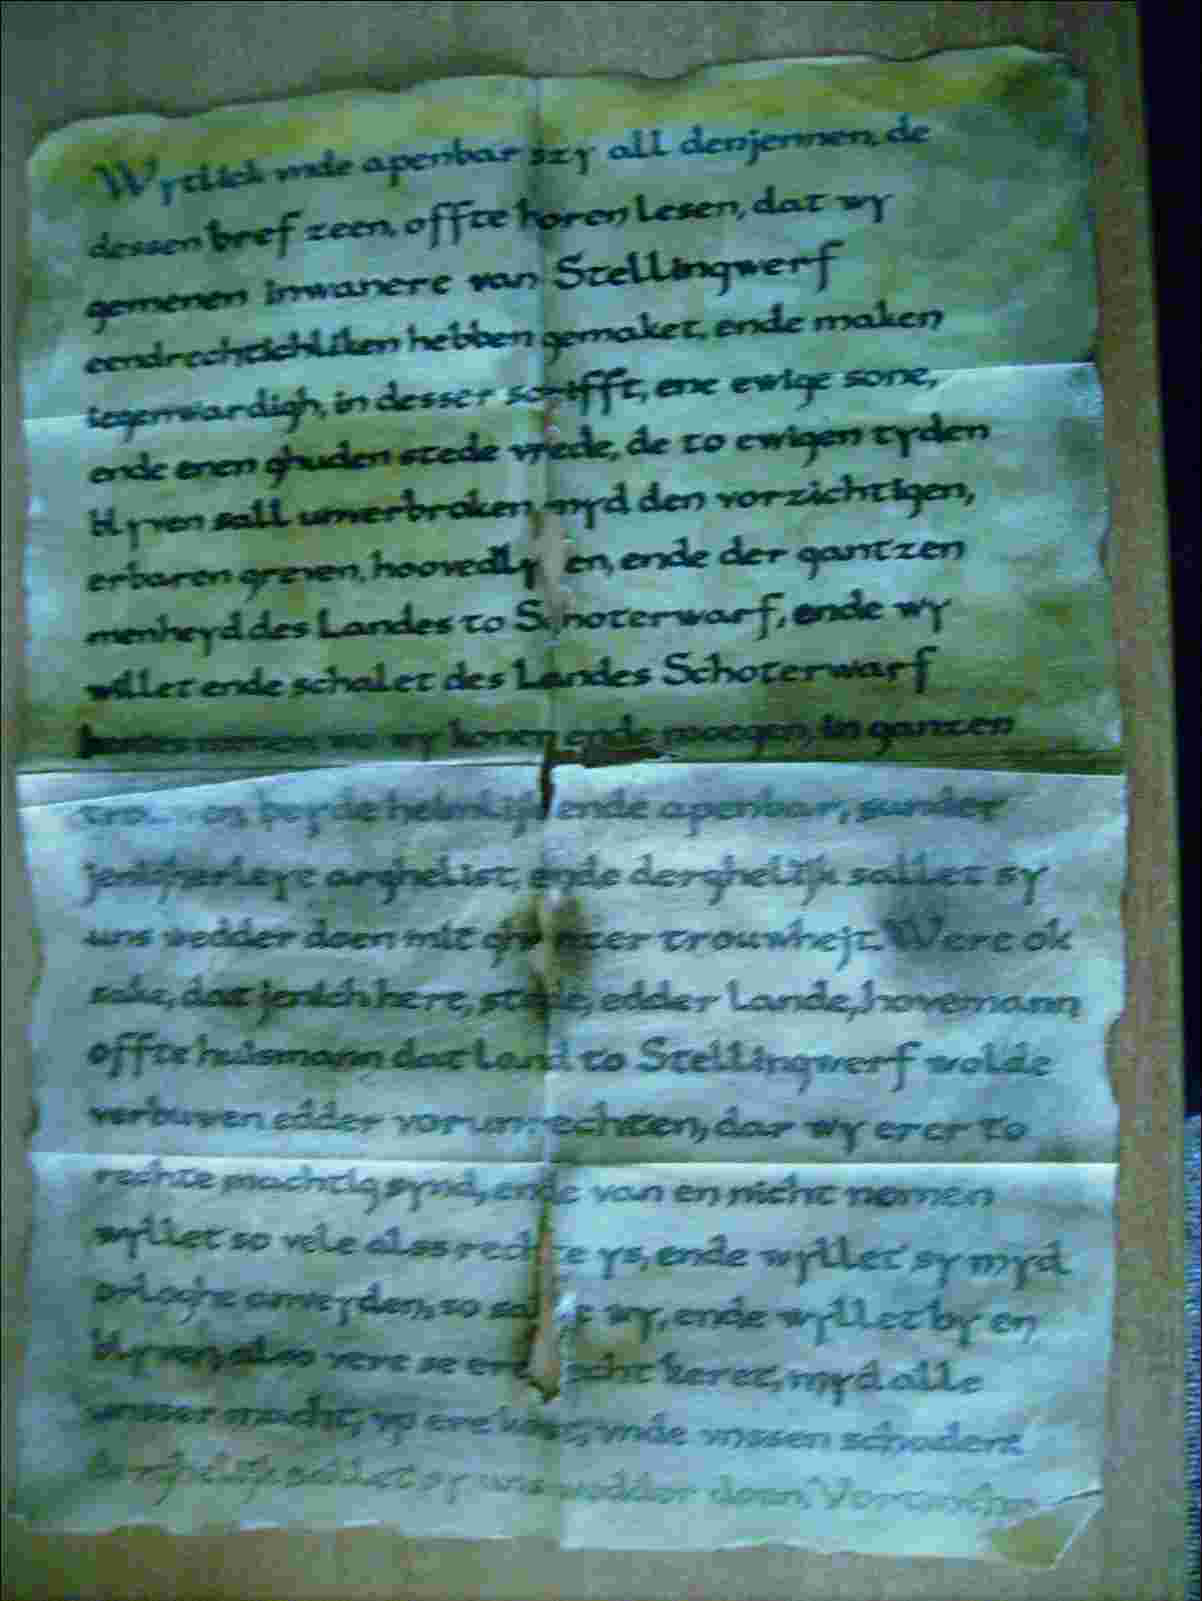 Wytlick vnde apenbar szy all denjennen, de
dessen bref zeen, offte horen lesen, dat wy
gemenen inwanere van Stellingwerf
eendrechtichliken hebben gemaket, ende maken
tegenwardigh, in desser scrifft, ene ewige sone,
ende enen ghuden stede vrede, de to ewigen tyden
blyven sall unverbroken, myd den vorzichtigen,
erbaren greven, hoovedly en, ende der gantzen
menheyd des Landes to Schoterwarf, ende wy
willet ende schalet des Landes Schoterwarf
wy konen ende moegen, in gantzen
beyde heimlijk ende apenbar, sunder
jenigherleye arghelist, ende derghelijk sallet sy
uns wedder doen mit ter trouwhejt. Were ok
sake, dat jenich here, stede, edder Lande, hovemann
offte huismann dat Land to Stellingwerf wolde
verbuwen edder vorunrechten, dar wy erer to
rechte machtig synd, ende van en nicht nemen
wyllet so vele alss rechte ys, ende wyllet sy myd
orloghe anveyden, so wy, ende wyllet by en
blyven, also vere se keret, myd alle
unsser macht, up ere vnde vnssen schadent
derghelijk sallet sy uns wedder doen.